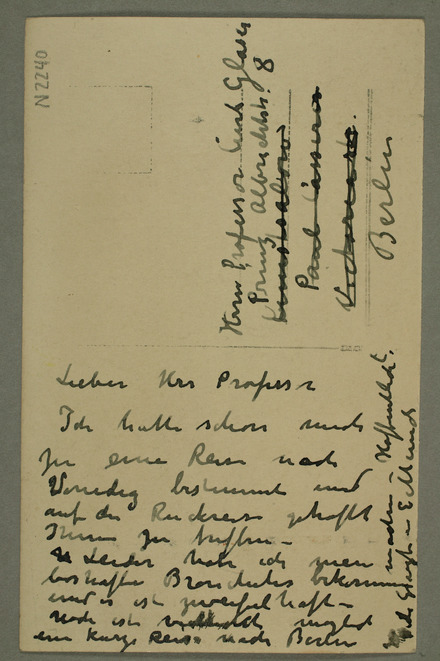 N 2240
Herrn Professor Curt Glaser
Prinz Albrechtstr. 8
Kunstsalon
Paul Cassirer
Victoriastr.
Berlin
Lieber Herr Professor
Ich hatte schon mich
zu eine Reise nach
Venedig bestimmt und
auf der Rückreise gehofft
Ihnen zu treffen –
Leider habe ich einen
boshaften Bronchites bekommen
und es ist zweifelhaft –
noch ist möglich
eine kurze Reise nach Berlin
machen – Hoffentlich
E. Munch